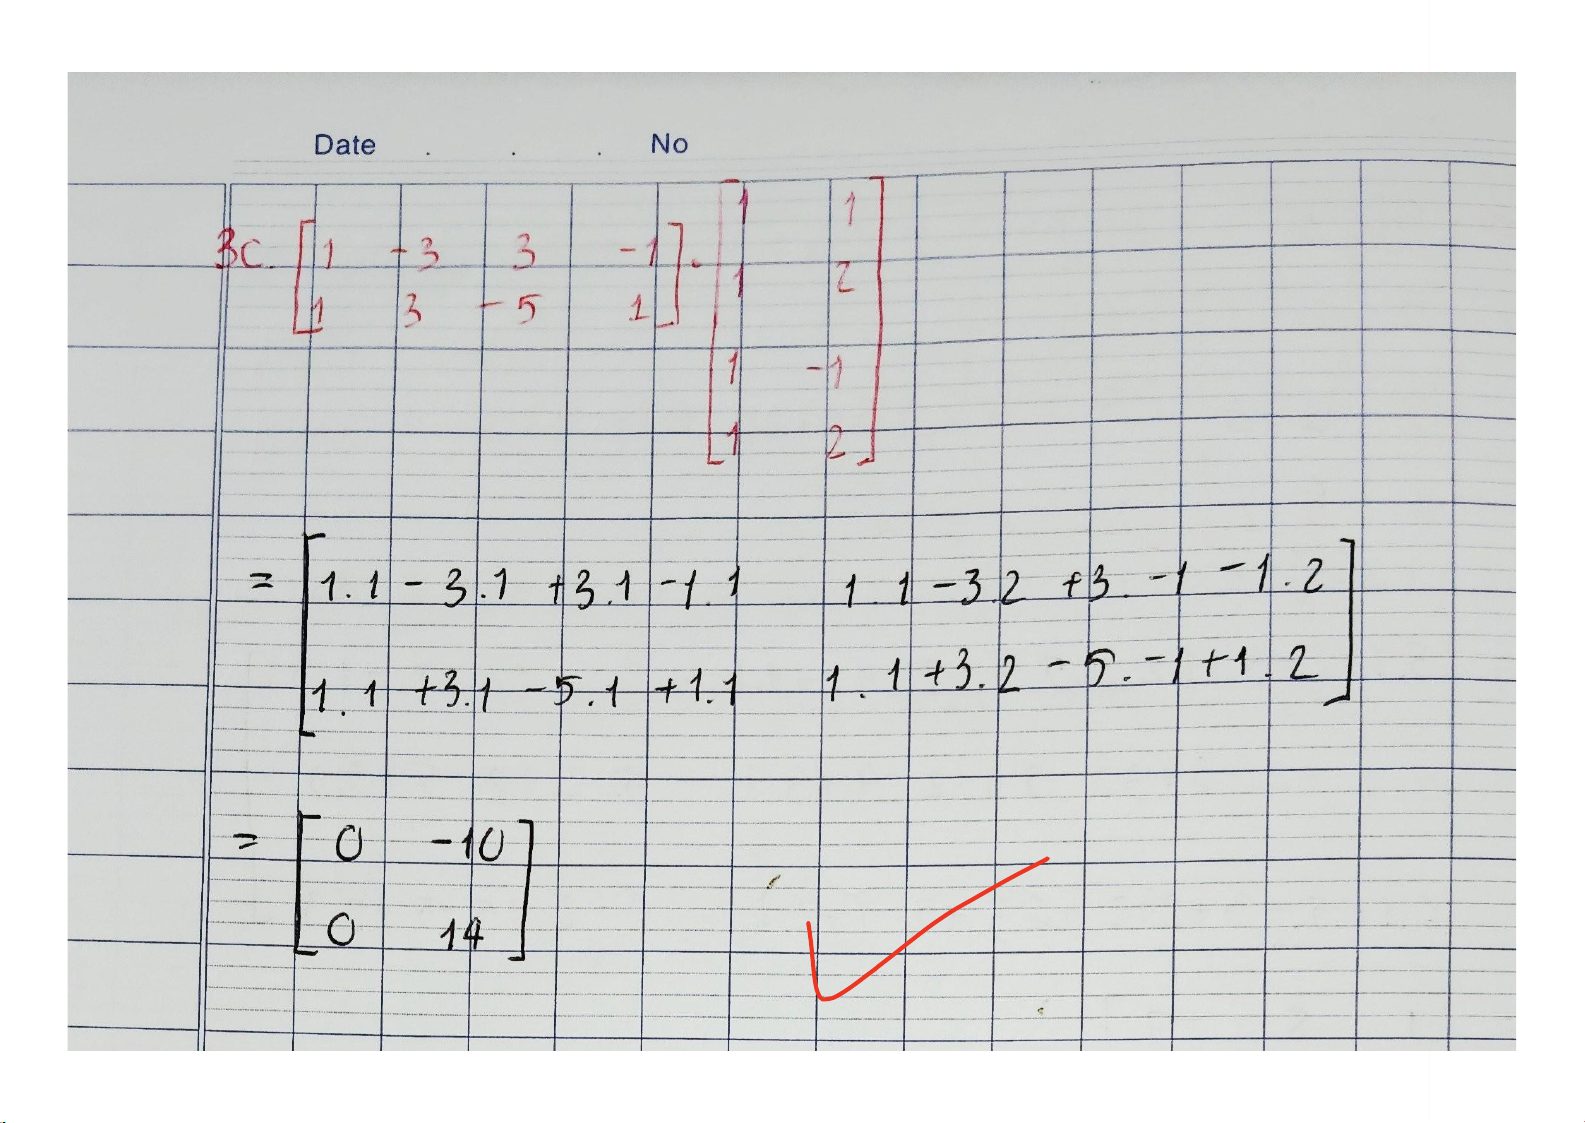 Date . . . No
3C. [ 1 -3 3 -1 ] . [ 1 1 ]
[ 1 3 -5 1 ] [ 1 2 ]
[ 1 -1 ]
[ 1 2 ]
= [ 1.1 - 3.1 +3.1 -1.1 1.1 -3.2 +3.-1 -1.2 ]
[ 1.1 +3.1 -5.1 +1.1 1.1 +3.2 -5.-1 +1.2 ]
= [ 0 -10 ]
[ 0 14 ]